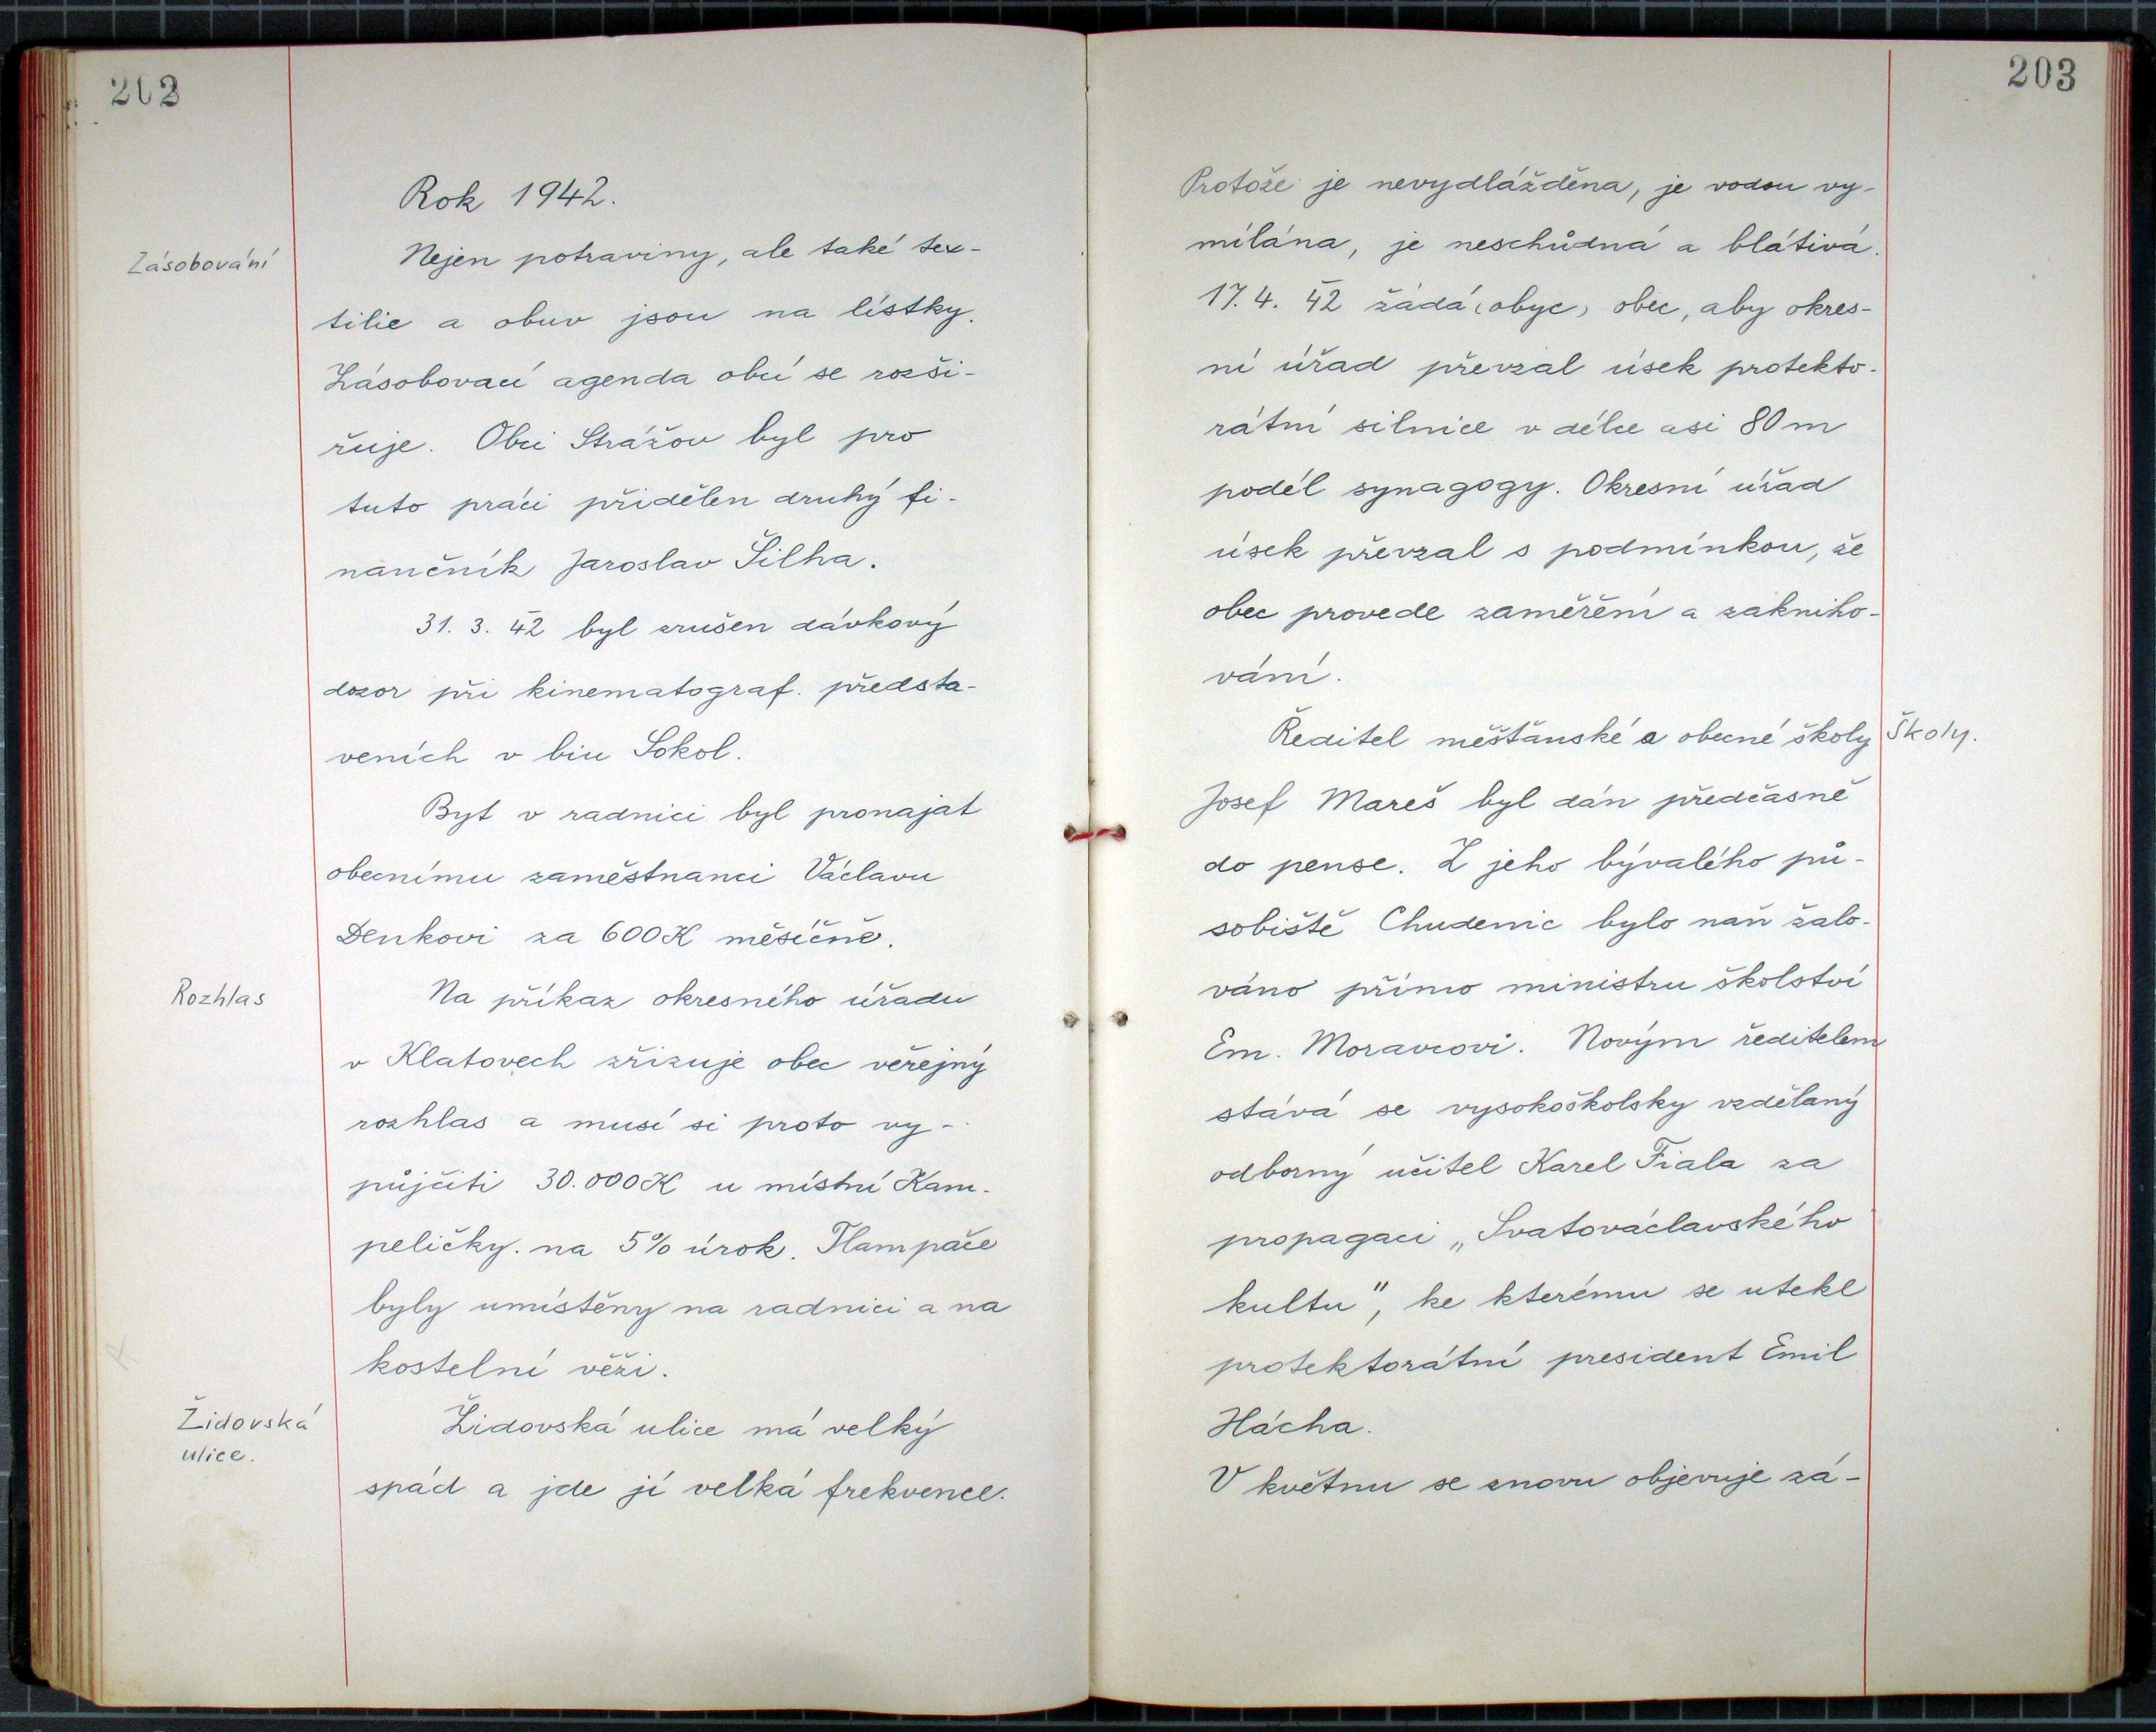 202
Rok 1942.
Zásobování
Nejen potraviny, ale také tex-
tilie a obuv jsou na lístky.
Zásobovací agenda obcí se rozši-
řuje. Obci Strážov byl pro
tuto práci přidělen druhý fi-
nančník Jaroslav Šilha.
31. 3. 42 byl zrušen dávkový
dozor při kinematograf. předsta-
veních v biu Sokol.
Byt v radnici byl pronajat
obecnímu zaměstnanci Václavu
Denkovi za 600K měsíčně.
Rozhlas
Na příkaz okresného úřadu
v Klatovech zřizuje obec veřejný
rozhlas a musí si proto vy-
půjčiti 30.000K u místní Kam-
peličky. na 5% úrok. Tlampače
byly umístěny na radnici a na
kostelní věži.
Židovská
ulice.
Židovská ulice má velký
spád a jde jí velká frekvence.
203
Protože je nevydlážděna, je vodou vy-
mílána, je neschůdná a blátivá.
17. 4. 42 žádá (obyc) obec, aby okres-
ní úřad převzal úsek protekto-
rátní silnice v délce asi 80m
podél synagogy. Okresní úřad
úsek převzal s podmínkou, že
obec provede zaměření a zakniho-
vání.
Ředitel měšťanské a obecné školy
Školy.
Josef Mareš byl dán předčasně
do pense. Z jeho bývalého pů-
sobiště Chudenic bylo naň žalo-
váno přímo ministru školství
Em. Moravcovi. Novým ředitelem
stává se vysokoškolsky vzdělaný
odborný učitel Karel Fiala za
propagaci „Svatováclavského
kultu", ke kterému se utekl
protektorátní president Emil
Hácha.
V květnu se znovu objevuje zá-